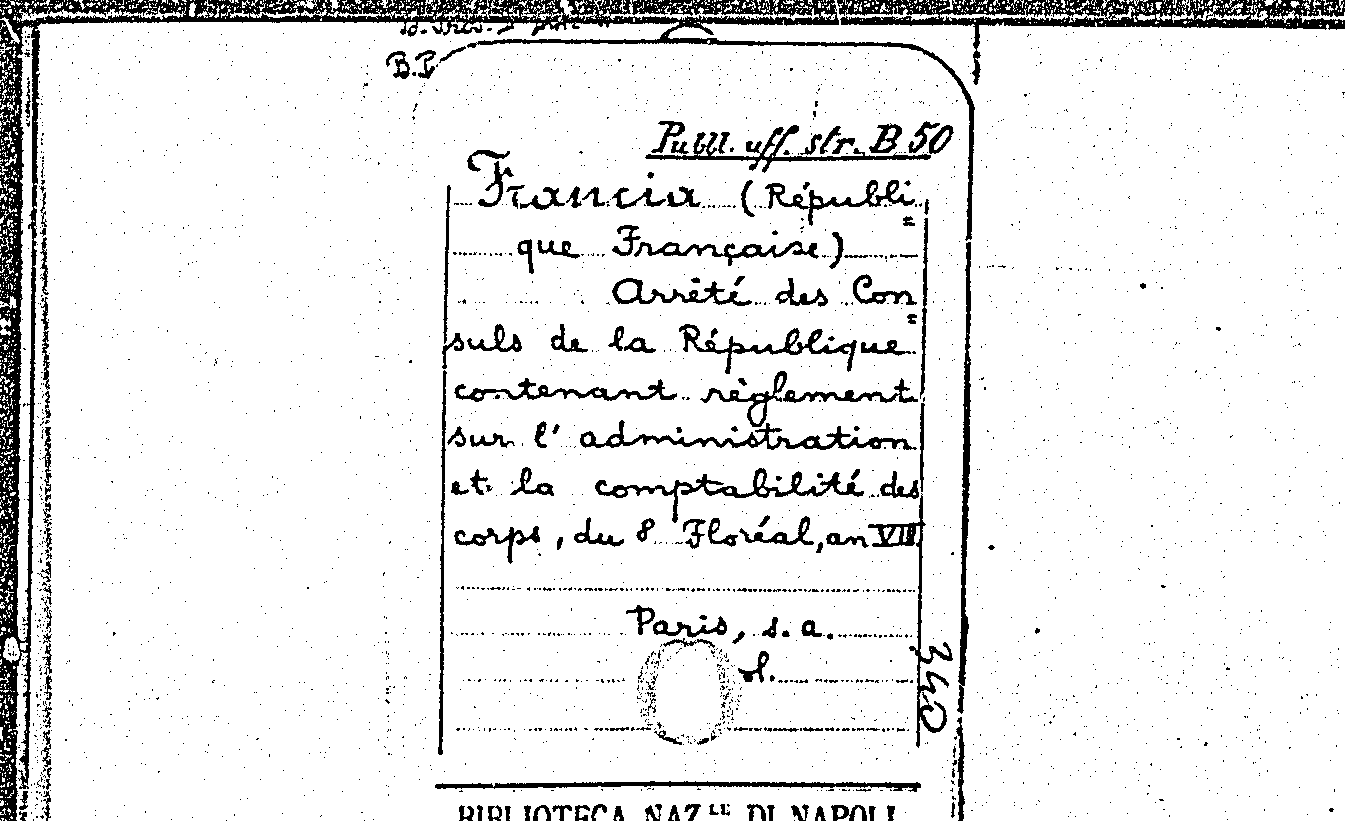 B.P.
Publ. uff. str. B 50
Francia (Républi=
que Française)
Arrêté des Con=
suls de la République
contenant règlement
sur l'administration
et la comptabilité des
corps, du 8 Floréal, an VIII.
Paris, s. a.
340
BIBLIOTECA NAZ.LE DI NAPOLI